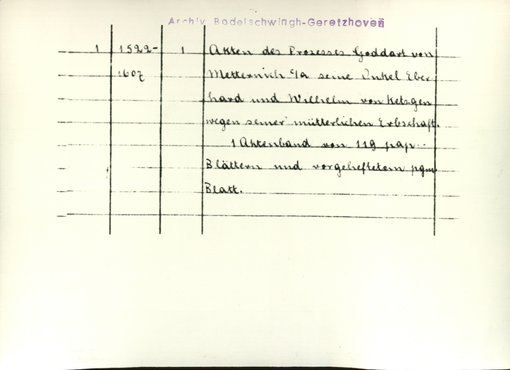 Archiv Bodelschwingh-Geretzhoven
1 1522- 1 Akten des Prozesses Goddart von
1607 Metternich c/a seine Onkel Eber
hard und Wilhelm von Ketzgen
wegen seiner mütterlichen Erbschaft.
1 Aktenband von 119 pap.
Blättern und vorgeheftetem pgm
Blatt.